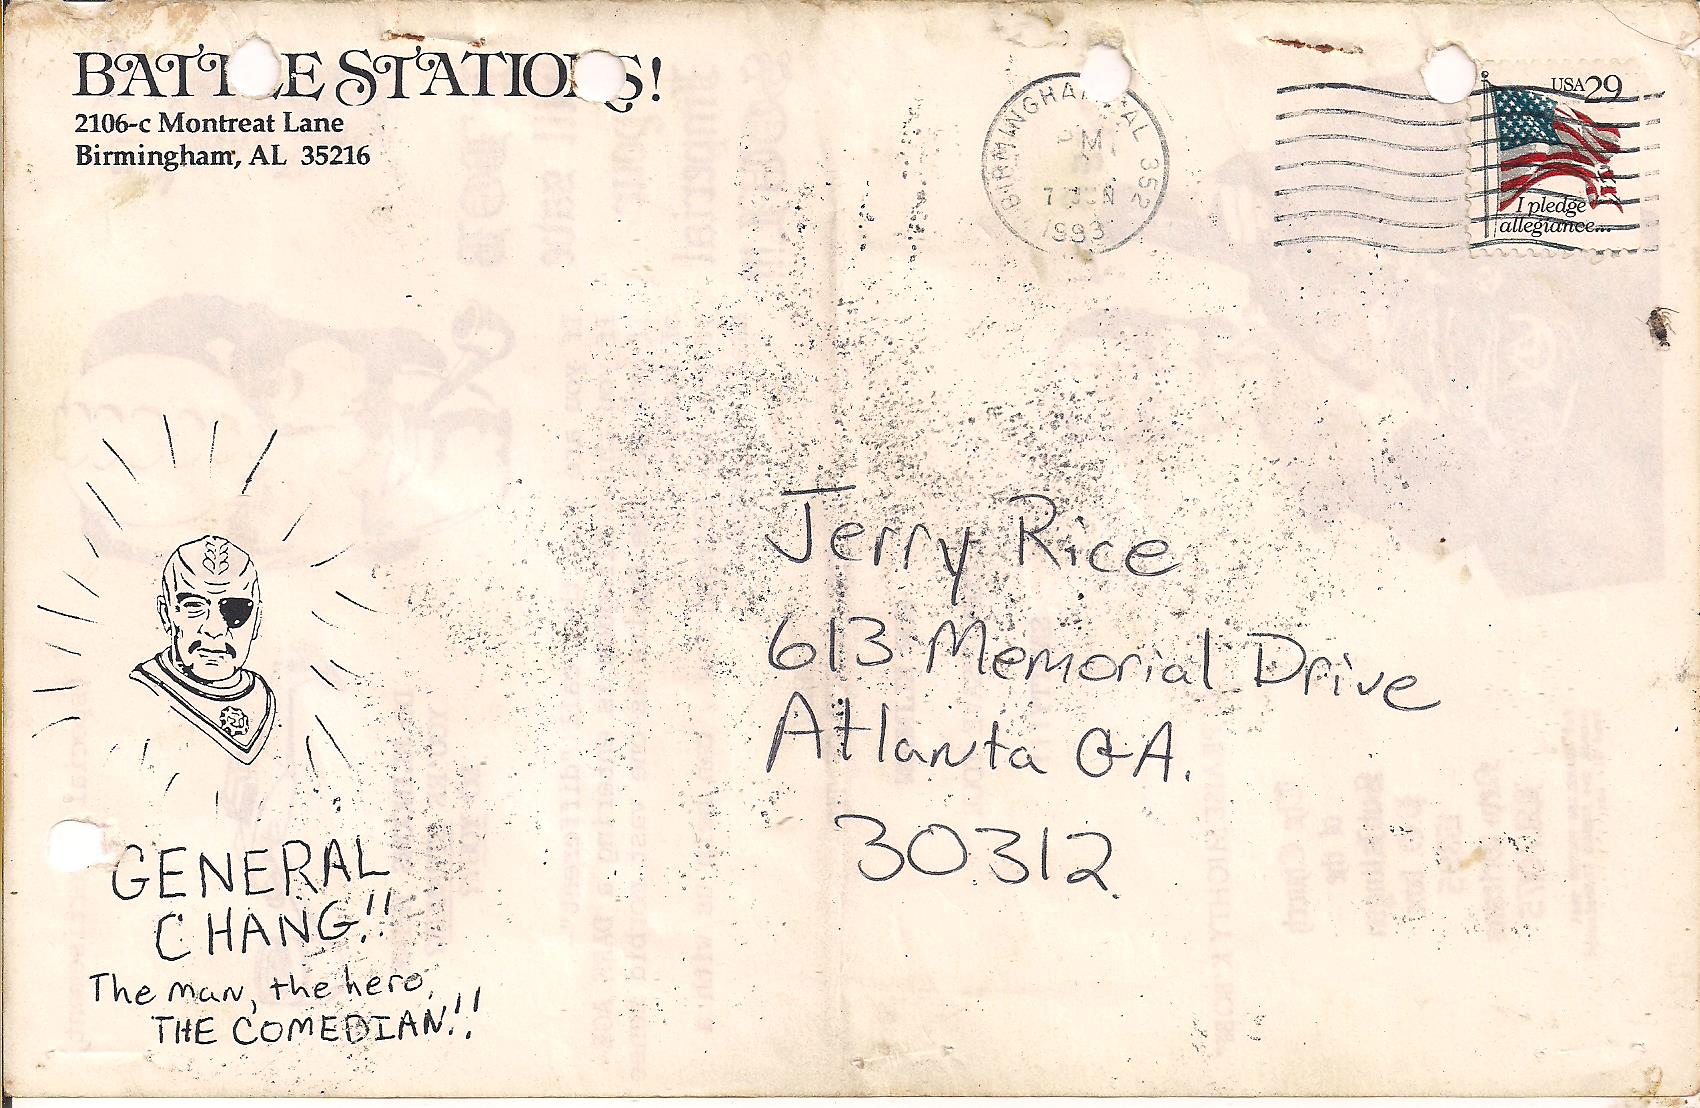 BATTLE STATIONS!
2106-c Montreat Lane
Birmingham, AL 35216
BIRMINGHAM, AL 352
PM
7 JUN
1993
USA 29
I pledge
allegiance...
Jerry Rice
613 Memorial Drive
Atlanta GA.
30312
GENERAL
CHANG!!
The man, the hero,
THE COMEDIAN!!